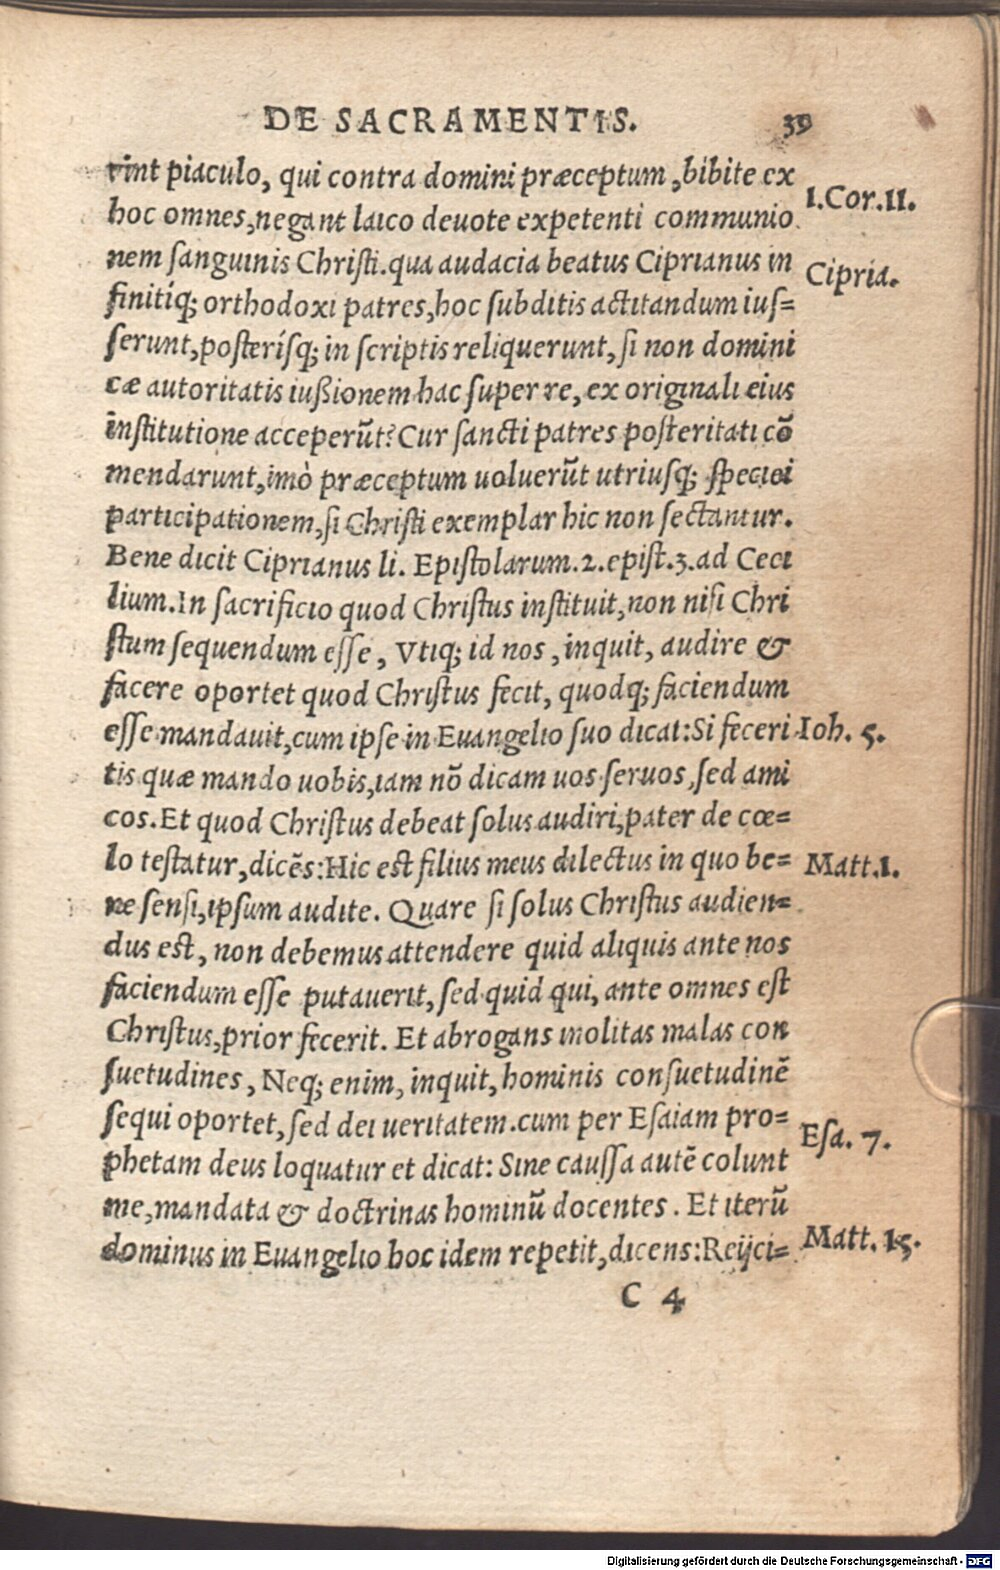 DE SACRAMENTIS. 39
rint piaculo, qui contra domini præceptum, bibite ex
hoc omnes, negant laico deuote expetenti communio
I.Cor.II.
nem sanguinis Christi. qua audacia beatus Ciprianus in
Cipria.
finitiq; orthodoxi patres, hoc subditis actitandum ius=
serunt, posterisq; in scriptis reliquerunt, si non domini
cæ autoritatis iußionem hac super re, ex originali eius
institutione acceperũt? Cur sancti patres posteritati cõ
mendarunt, imò præceptum uoluerũt utriusq; speciei
participationem, si Christi exemplar hic non sectantur.
Bene dicit Ciprianus li. Epistolarum. 2. epist. 3. ad Ceci
lium. In sacrificio quod Christus instituit, non nisi Chri
stum sequendum esse, Vtiq; id nos, inquit, audire &
facere oportet quod Christus fecit, quodq; faciendum
esse mandauit, cum ipse in Euangelio suo dicat: Si feceri
Ioh. 5.
tis quæ mando uobis, iam nõ dicam uos seruos, sed ami
cos. Et quod Christus debeat solus audiri, pater de cœ=
lo testatur, dicẽs: Hic est filius meus dilectus in quo be=
Matt.I.
ne sensi, ipsum audite. Quare si solus Christus audien=
dus est, non debemus attendere quid aliquis ante nos
faciendum esse putauerit, sed quid qui, ante omnes est
Christus, prior fecerit. Et abrogans inolitas malas con
suetudines, Neq; enim, inquit, hominis consuetudinẽ
sequi oportet, sed dei ueritatem. cum per Esaiam pro=
Esa. 7.
phetam deus loquatur et dicat: Sine caussa autẽ colunt
me, mandata & doctrinas hominũ docentes. Et iterũ
dominus in Euangelio hoc idem repetit, dicens: Reijci=
Matt. 15.
C 4
Digitalisierung gefördert durch die Deutsche Forschungsgemeinschaft - DFG